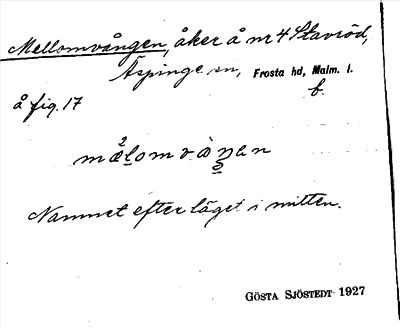 Mellomvången, åker å nr 4 Stavröd,
Äspinge sn, Frosta hd, Malm. l.
å fig. 17 b.
Namnet efter läget i mitten.
GÖSTA SJÖSTEDT 1927